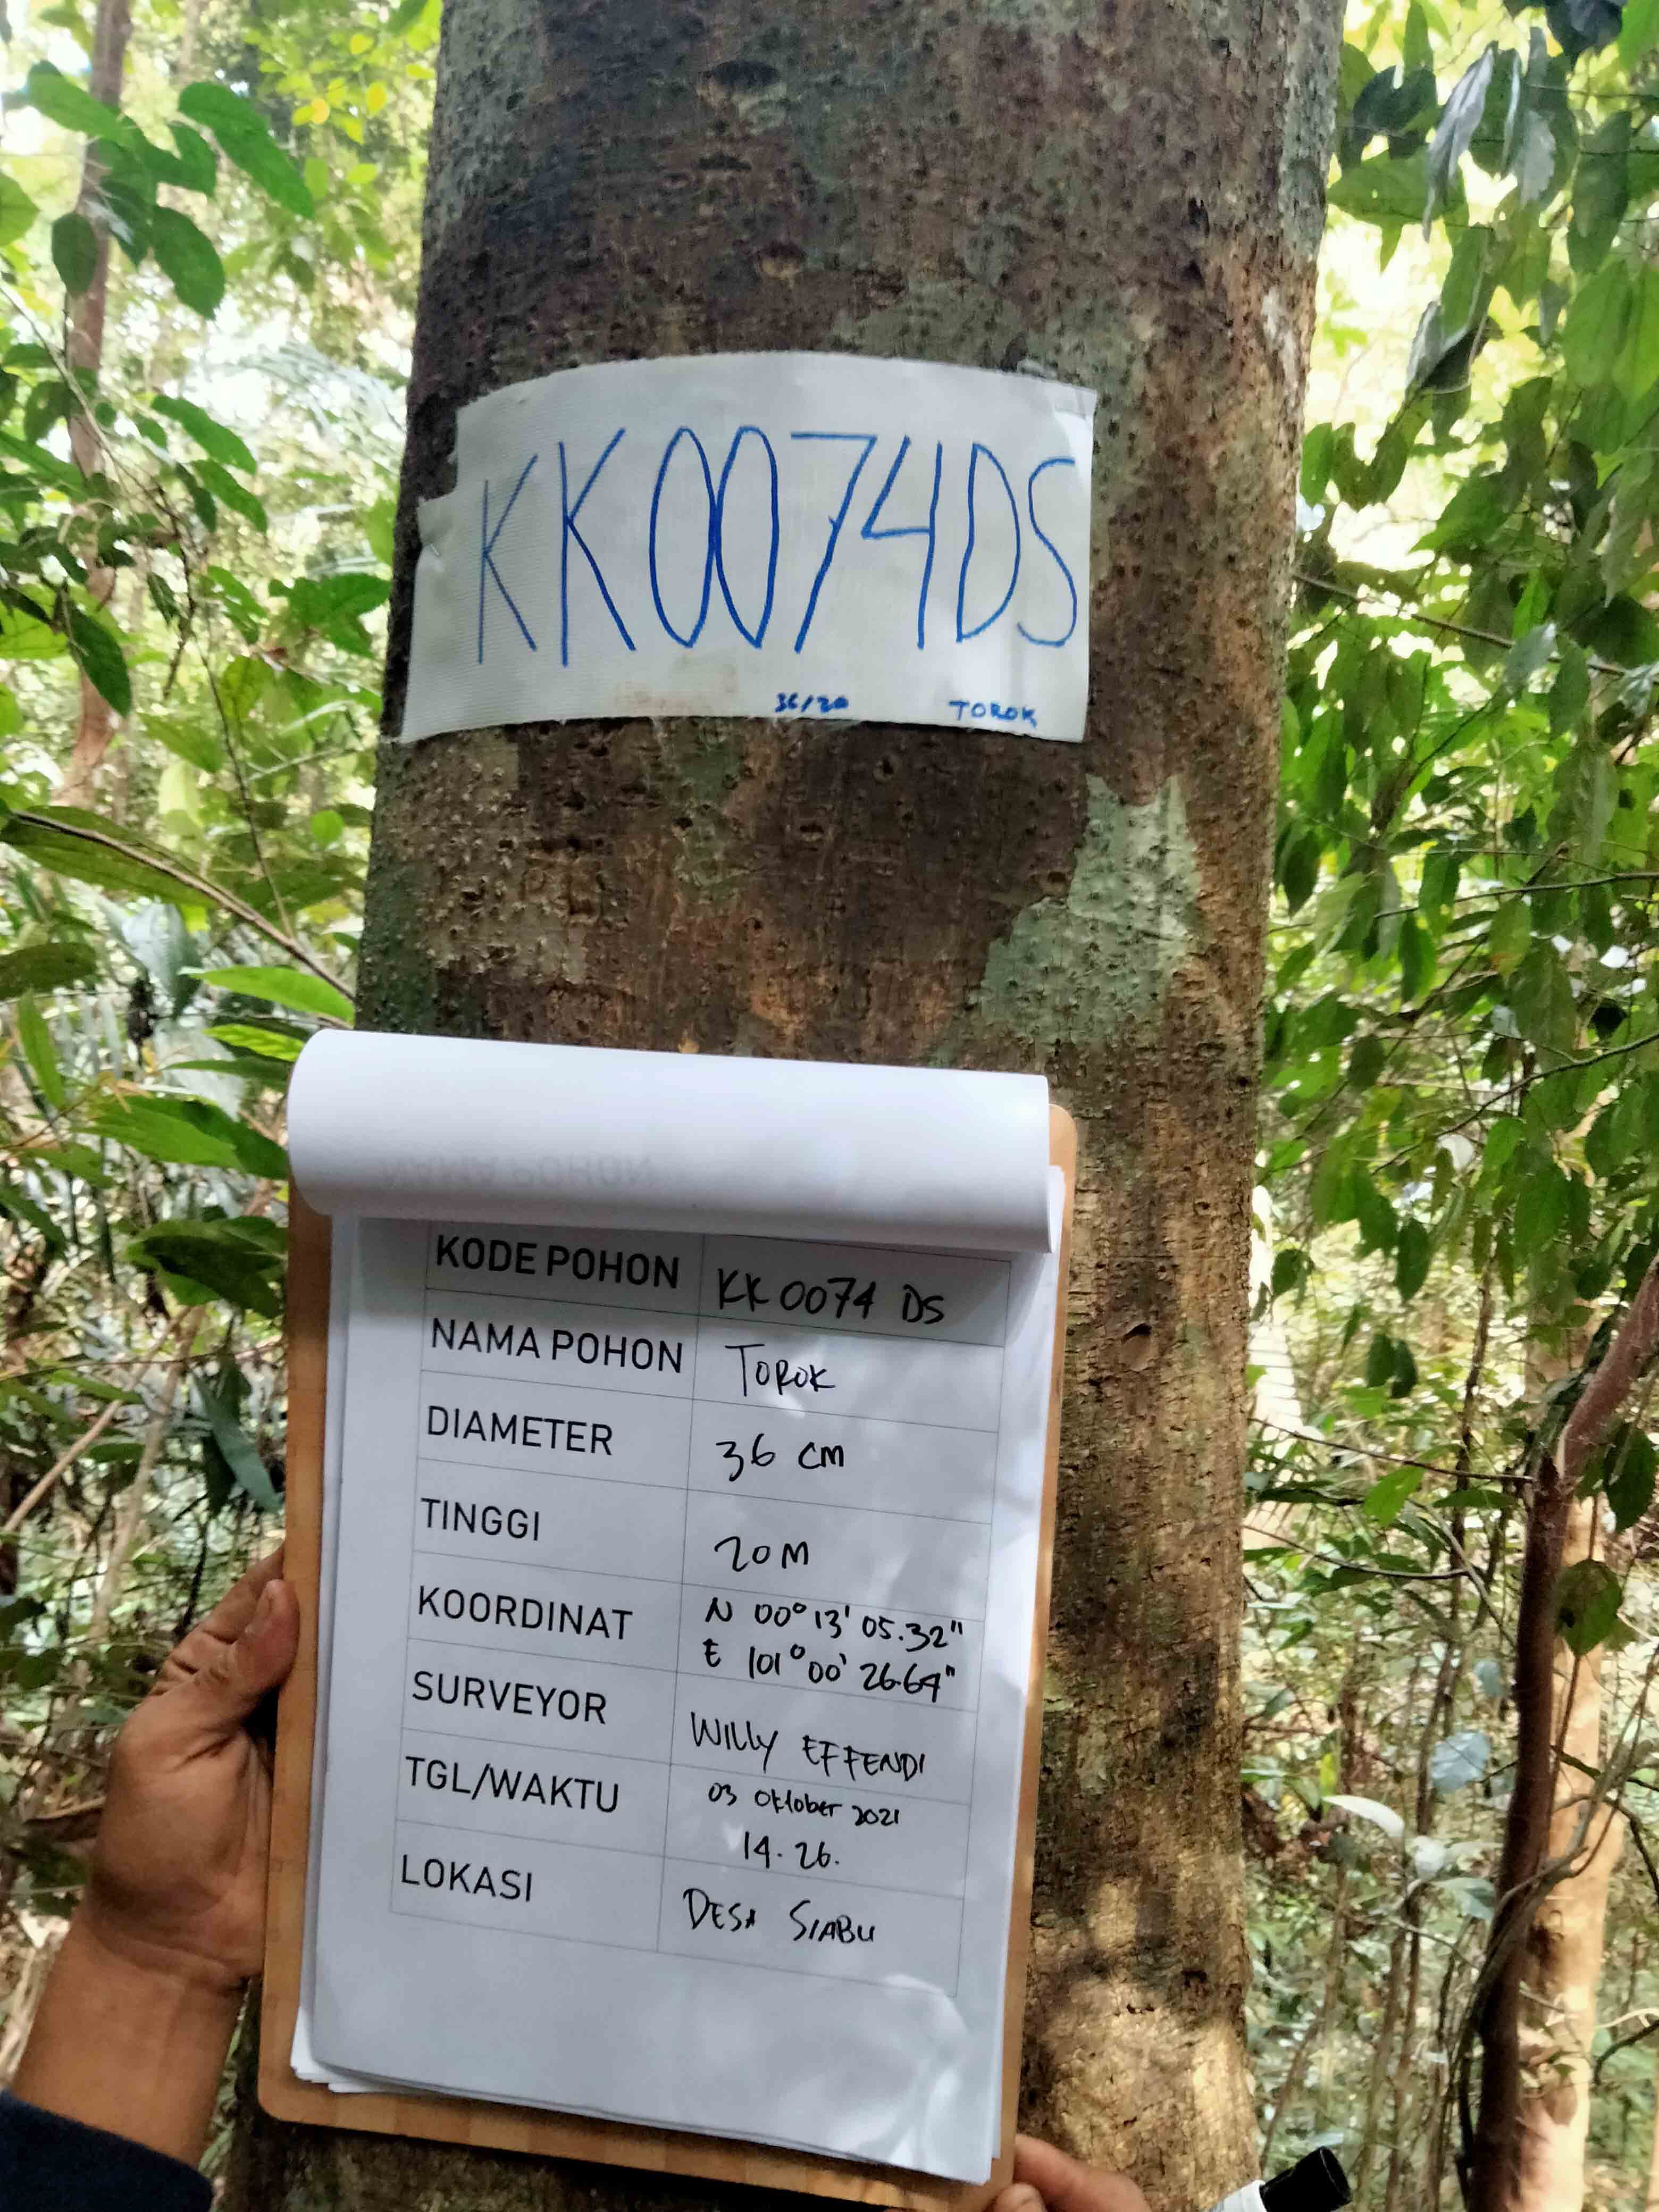 KK0074DS
36/20 TOROK
NAMA POHON
KODE POHON KK 0074 DS
NAMA POHON TOROK
DIAMETER 36 CM
TINGGI 20 M
KOORDINAT N 00° 13' 05.32"
E 101° 00' 26.64"
SURVEYOR WILLY EFFENDI
TGL/WAKTU 03 Oktober 2021
14.26.
LOKASI DESA SIABU